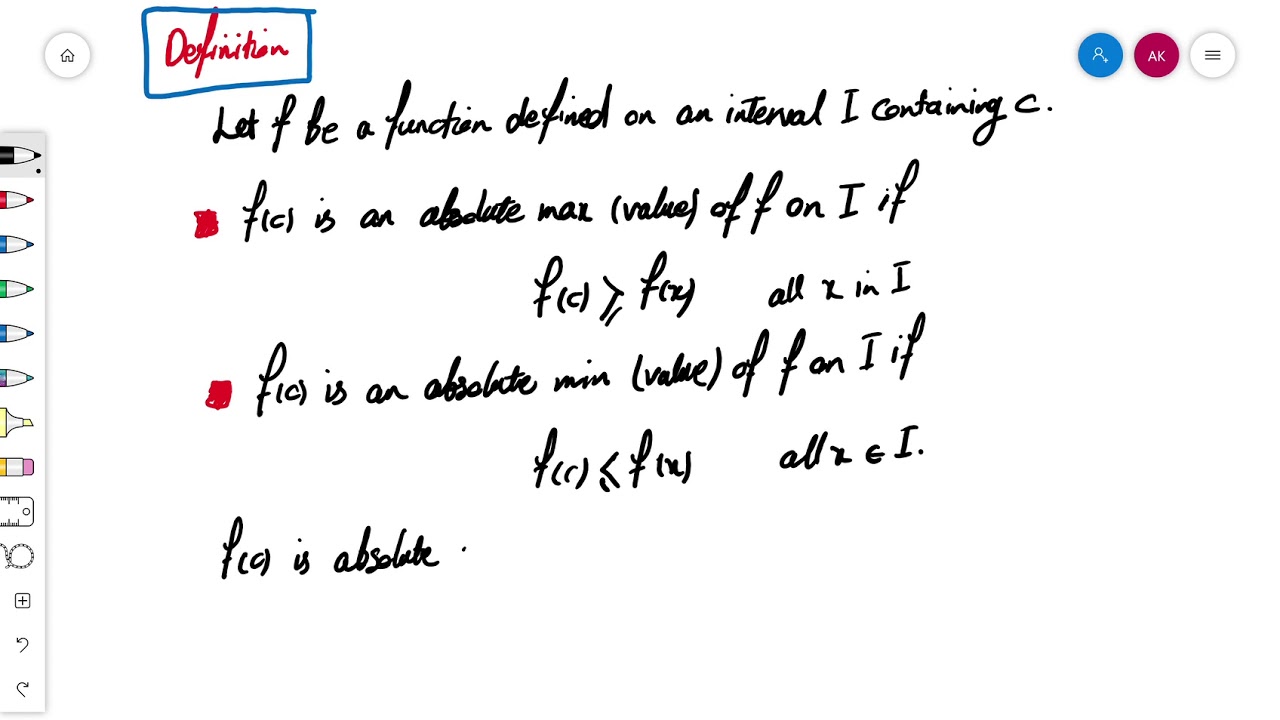 Definition
AK
Let f be a function defined on an interval I containing c.
f(c) is an absolute max (value) of f on I if
f(c) ⩾ f(x) all x in I
f(c) is an absolute min (value) of f on I if
f(c) ⩽ f(x) all x ∈ I.
f(c) is absolute